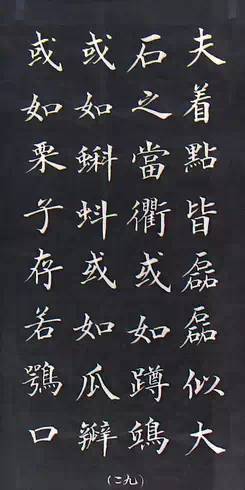 夫着點皆磊磊似大
石之當衢或如蹲鴟
或如蝌蚪或如瓜瓣
或如栗子存若鶚口
(二九)